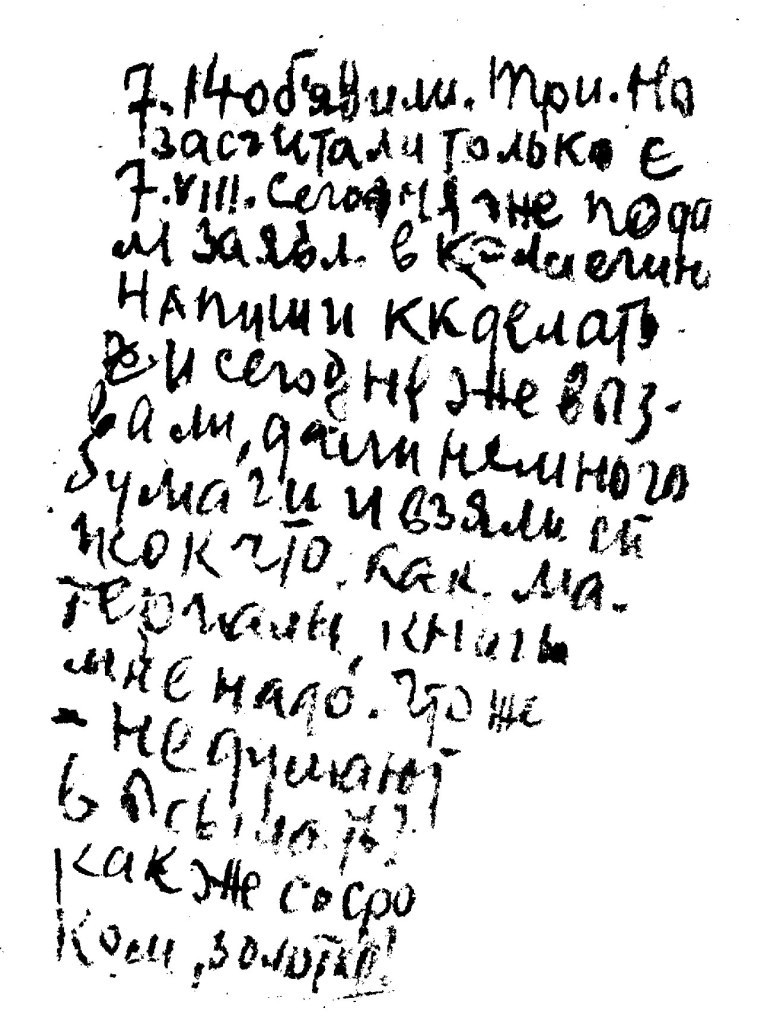 7. 14 объявили. Три. Но
засчитали только с
7.VIII. Сегодня же пода
м заявл. в
Напиши ккделать
и сегодне же выз-
вали, дали немного
бумаги и взяли
что. Как. ма-
териалы, книги
мне надо. Что же
- не думают
высылать?
Как же со сро
ком, золотко!